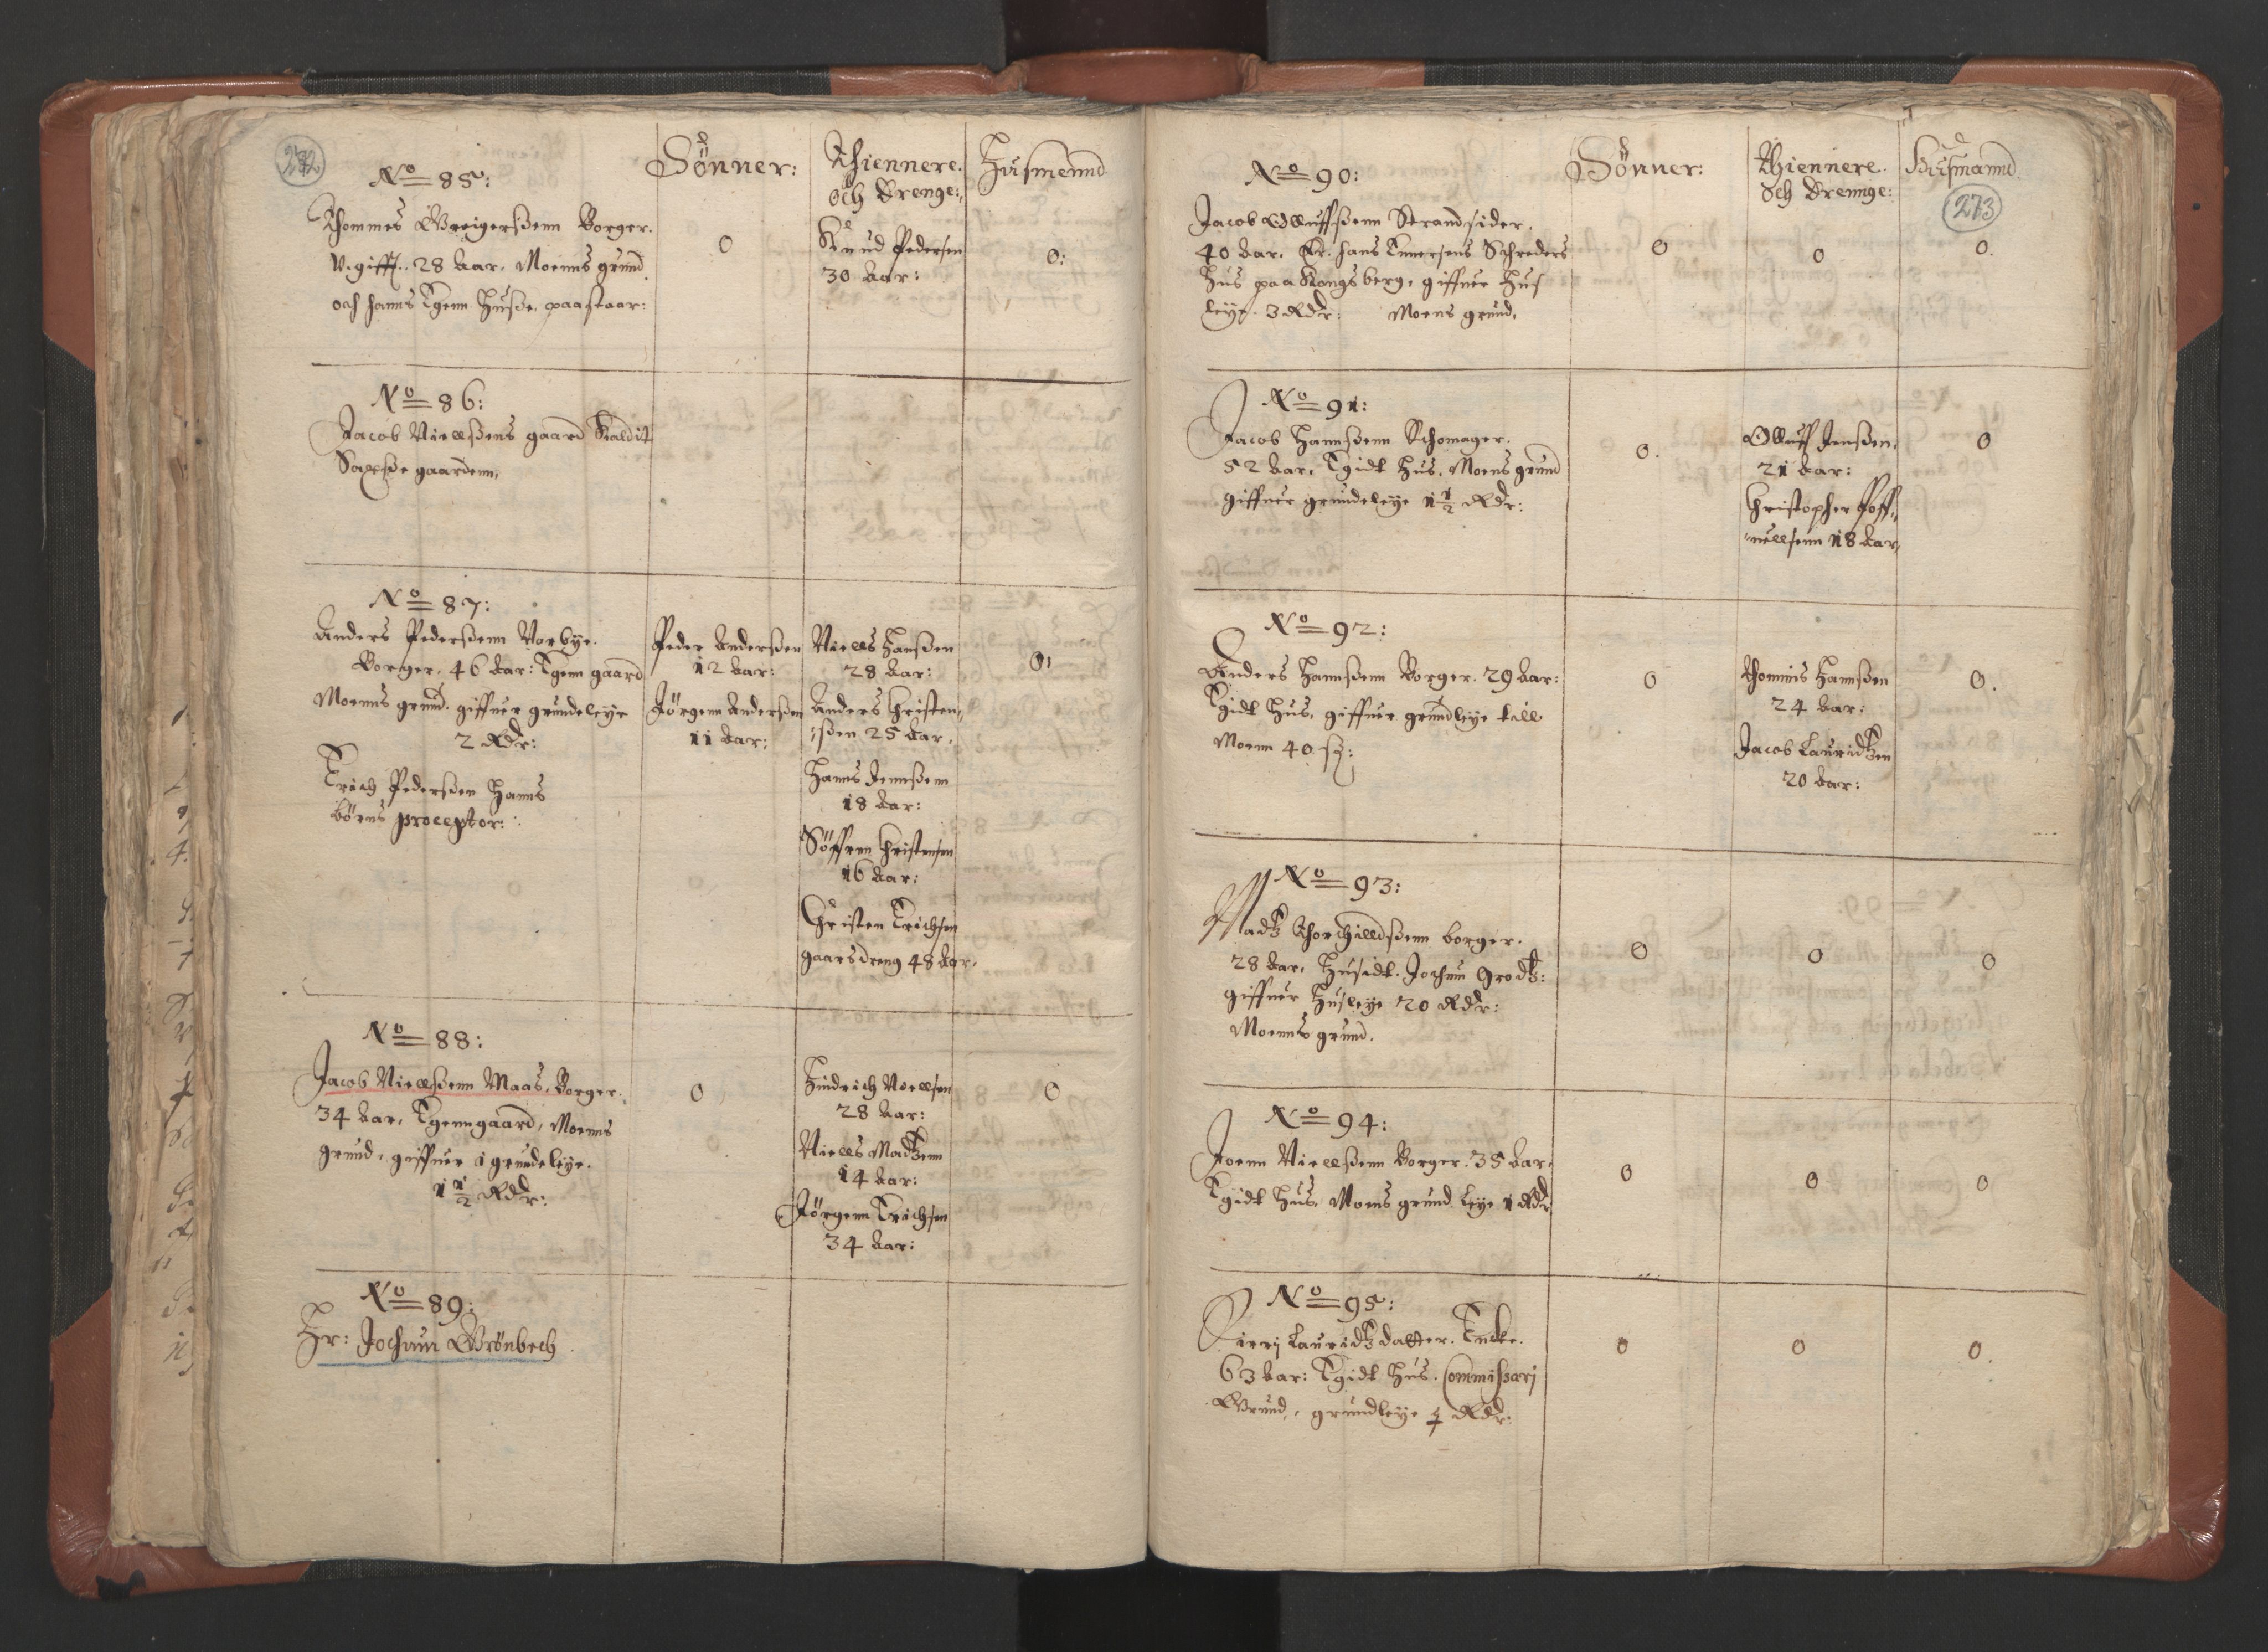 272
No 85:
Sönner:
Thiennere
och drenge:
Husmennd
Thommes Greigerßenn Borger.
V.gifft. 28 Aar. Moenns grund
och hanns Egenn Huße. paastaar:
0
Knud Pedersen
30 Aar:
0:
No 86:
Jacob Niellßens gaard kaldit
gaardenn,
No 87:
Anders Pederßenn Norbye.
Borger. 46 Aar: Egenn gaard
Moenns grund. giffuer grundeleye
2 Rdr:
Erich Pederßen Hanns
börns proceptor:
Peder Anderßen
12 Aar:
Jörgenn Anderßen
11 Aar:
Niells Hanßen
28 Aar:
Anders Christen,
:ßen 25 Aar,
Hanns Jennßenn
18 Aar:
Söffren Christensen
16 Aar:
Christen Erichsen
gaarsdreng 48 Aar,
0:
No 88:
Jacob Niellßenn Maas, Borger.
34 Aar, Egenngaard, Moenns
grund, giffuer i grundeleye.
1 1/2 Rdr:
0
Hindrich Niellsen
28 Aar:
Niells Madtzenn
14 Aar:
Jörgenn Erichsen
34 Aar:
0
No 89:
Hr: Jochum Grönbech
No 90:
Sönner:
Thiennere
och drennge:
Husmannd
273
Jacob Olluffßenn Strandsider,
40 Aar. Er. Hans Schreders
Hus paa Kongsberg, giffuer Hus
leye. 3 Rdr: Moens grund,
0
0
0.
No 91:
Jacob Hannßenn Schomager.
52 Aar, Egidt Hus, Moens grund
giffuer grundeleye 1 1/2 Rdr:
0.
Olluff Jenßen,
21 Aar:
Christopher Poff,
:uellsenn 18 Aar,
0
No 92:
Anders Hannßenn Borger. 29 Aar:
Egidt Hus, giffuer grundleye till
Moenn 40 sz:
0
Thommis Hannßen
24 Aar:
Jacob Lauridtzen
20 Aar:
0.
No 93:
Madtz Thorchilldßenn borger.
28 Aar, Husidt. Jochum Grodtz:
giffuer Husleye 20 Rdr:
Moenns grund.
0
0
0
No 94:
Joenn Niellßenn Borger. 35 Aar,
Egidt Hus, Moens grund leye 1 Rdr
0
0
0
No 95:
Sirrj Lauridtzdatter. Encke.
63 Aar: Egidt Hus. Commissarj
Grund, grundleye Rdr:
0
0
0.